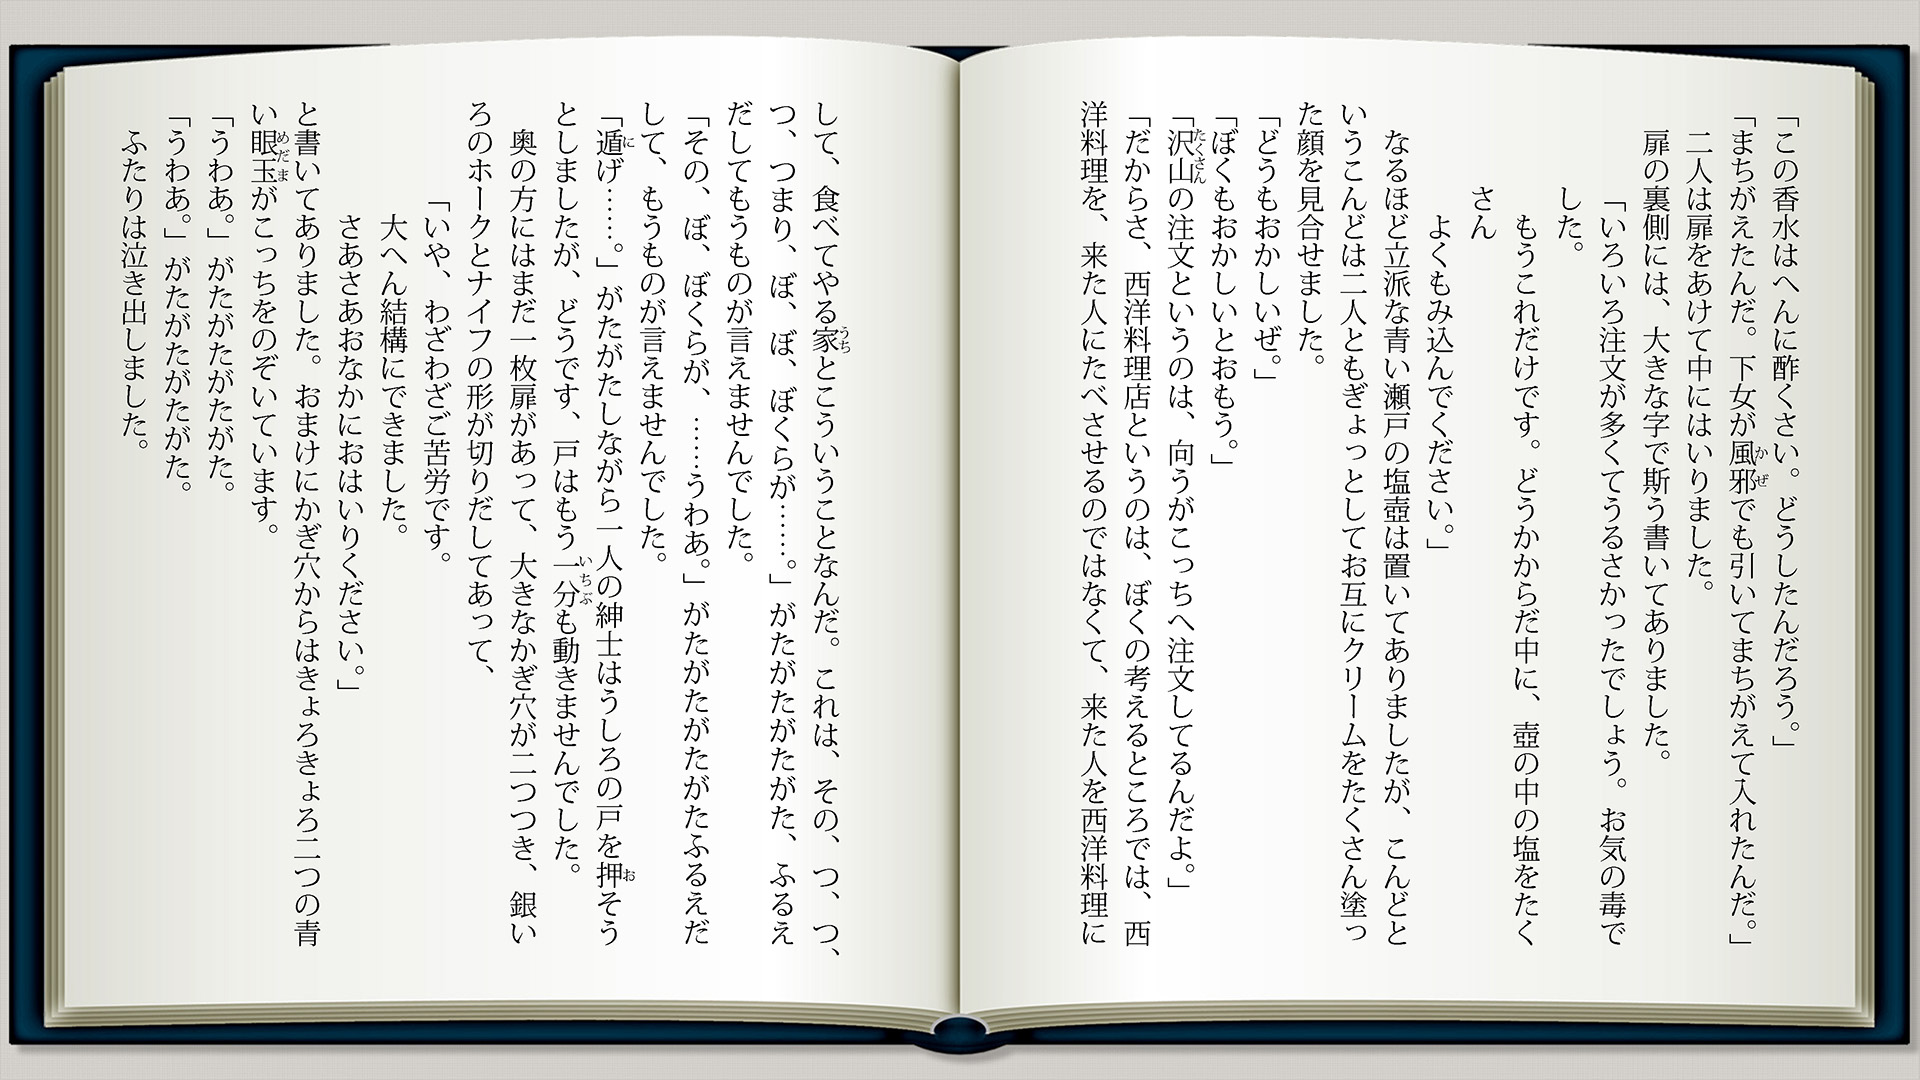 「この香水はへんに酢くさい。どうしたんだろう。」
「まちがえたんだ。下女が風邪でも引いてまちがえて入れたんだ。」
二人は扉をあけて中にはいりました。
扉の裏側には、大きな字で斯う書いてありました。
「いろいろ注文が多くてうるさかったでしょう。お気の毒で
した。
もうこれだけです。どうかからだ中に、壺の中の塩をたく
さん
よくもみ込んでください。」
なるほど立派な青い瀬戸の塩壺は置いてありましたが、こんどと
いうこんどは二人ともぎょっとしてお互にクリームをたくさん塗っ
た顔を見合せました。
「どうもおかしいぜ。」
「ぼくもおかしいとおもう。」
「沢山の注文というのは、向うがこっちへ注文してるんだよ。」
「だからさ、西洋料理店というのは、ぼくの考えるところでは、西
洋料理を、来た人にたべさせるのではなくて、来た人を西洋料理に
して、食べてやる家とこういうことなんだ。これは、その、つ、つ、
つ、つまり、ぼ、ぼ、ぼくらが……。」がたがたがたがた、ふるえ
だしてもうものが言えませんでした。
「その、ぼ、ぼくらが、……うわあ。」がたがたがたがたふるえだ
して、もうものが言えませんでした。
「遁げ……。」がたがたしながら一人の紳士はうしろの戸を押そう
としましたが、どうです、戸はもう一分も動きませんでした。
奥の方にはまだ一枚扉があって、大きなかぎ穴が二つつき、銀い
ろのホークとナイフの形が切りだしてあって、
「いや、わざわざご苦労です。
大へん結構にできました。
さあさあおなかにおはいりください。」
と書いてありました。おまけにかぎ穴からはきょろきょろ二つの青
い眼玉がこっちをのぞいています。
「うわあ。」がたがたがたがた。
「うわあ。」がたがたがたがた。
ふたりは泣き出しました。